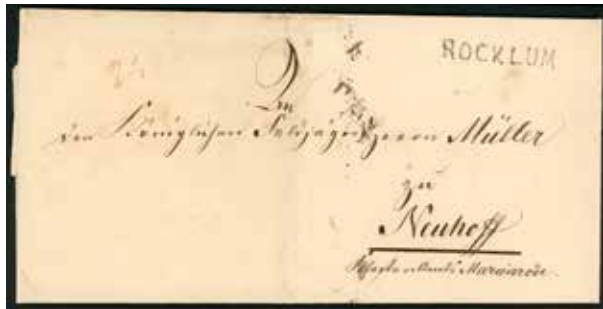 ROCKLUM
An
den Königlichen Feldjäger Herrn Müller
zu
Neuhoff
Marienrode.